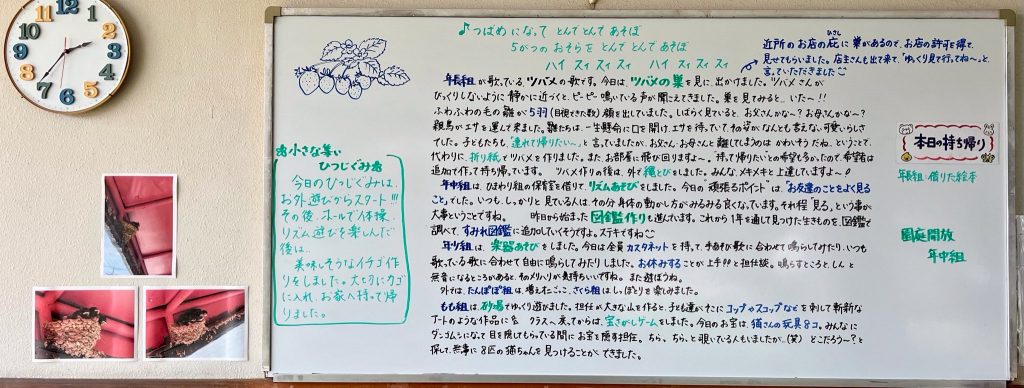 ♪つばめ になって とんで とんで あそぼ
5がつの おそらを とんで とんで あそぼ
ハイ スィ スィ スィ ハイ スィ スィ スィ
近所のお店の庇に巣があるので、お店の許可を得て、
ひさし
見せてもらいました。店主さんも出て来て、「ゆっくり見て行ってね〜♪」と
言っていただきました
年長組が歌っている、ツバメの歌です。今日は、ツバメの巣を見に出かけました。ツバメさんが
びっくりしないように静かに近づくと、ピーピー鳴いている声が聞こえてきました。巣を見てみると…いた〜!!
ふわふわの毛の雛が5羽(目視できた数)顔を出していました。しばらく見ていると、お父さんかな〜?お母さんかな〜?
親鳥がエサを運んで来ました。雛たちは、一生懸命に口を開け、エサを待っていて、その姿がなんとも言えない可愛いらしさ
でした。子どもたちも、"連れて帰りたい〜"と言っていましたが、お父さん、お母さんと離してしまうのはかわいそうだね、ということで、
代わりに、折り紙でツバメを作りました。また、お部屋に飛び回りますよ〜。持って帰りたい!との希望も多かったので、希望者は
追加で作って持ち帰っています。 ツバメ作りの後は、外で縄とびをしました。みんな、メキメキと上達してますよ〜!
年中組は、ひまわり組の保育室を借りて、リズムあそびをしました。今日の"頑張るポイント"は、"お友達のことをよく見る
こと"でした。いつも、しっかりと見ている人は、その分身体の動かし方がみるみる良くなっています。それ程「見る」という事が
大事ということですね。 昨日から始まった図鑑作りも進んでいます。これから1年を通して見つけた生きものを、図鑑で
調べて、すみれ図鑑に追加していくそうですよ。ステキですね
年少組は、楽器あそびをしました。今日は全員カスタネットを持って、手あそび歌に合わせて鳴らしてみたり、いつも
歌っている歌に合わせて自由に鳴らしてみたりしました。お休みすることが上手!!と担任談。鳴らすところと、しんと
無音になるところがあると、そのメリハリが気持ちいいですね。また遊ぼうね。
外では、たんぽぽ組は、さくら組は、しっぽとりを楽しみました。
もも組は、砂場でゆっくり遊びました。担任が大きな山を作ると、子ども達がそこにコップやスコップなどを刺して斬新な
アートのような作品に クラスへ戻ってからは、宝さがしゲームをしました。今日のお宝は、猫さんの玩具8コ。みんなに
ダンゴムシになって目を隠してもらっている間にお宝を隠す担任。ちら、ちら、と覗いている人もいましたが、(笑) どこだろう〜?と
探して、無事に8匹の猫ちゃんを見つけることができました。
小さな集い
ひつじぐみ
今日のひつじぐみは、
お外遊びからスタート!!!
その後、ホールで体操、
リズム遊びを楽しんだ
後は…
美味しそうなイチゴ作
りをしました。大切にカゴ
に入れ、お家へ持って帰
りました。
本日の持ち帰り
年長組:借りた絵本
園庭開放
年中組
12
1
2
3
4
5
6
7
8
9
10
11